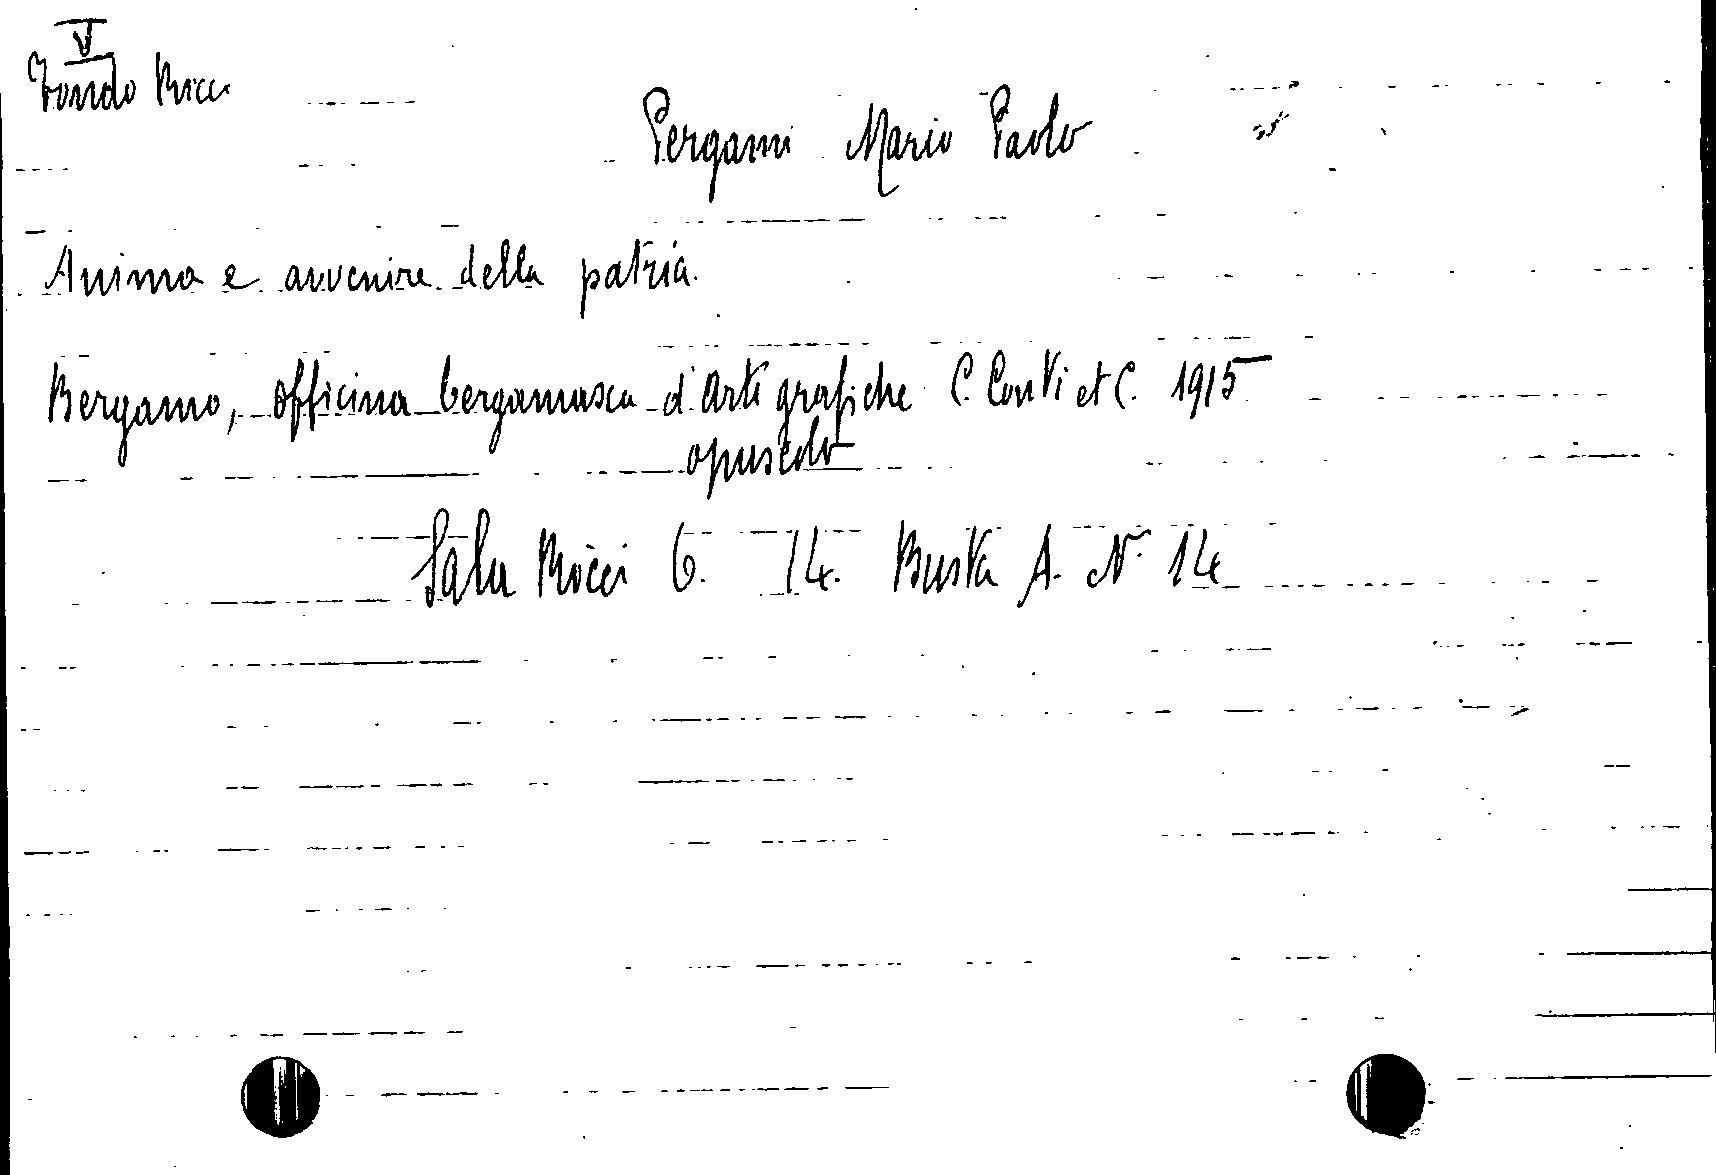 V
Fondo Ricci
Pergami Mario Paolo
Anima e avvenire della patria.
Bergamo, officina bergamasca d'arti grafiche C. Conti et C. 1915
opuscolo
Sala Ricci 6. 14. Busta A. N. 14